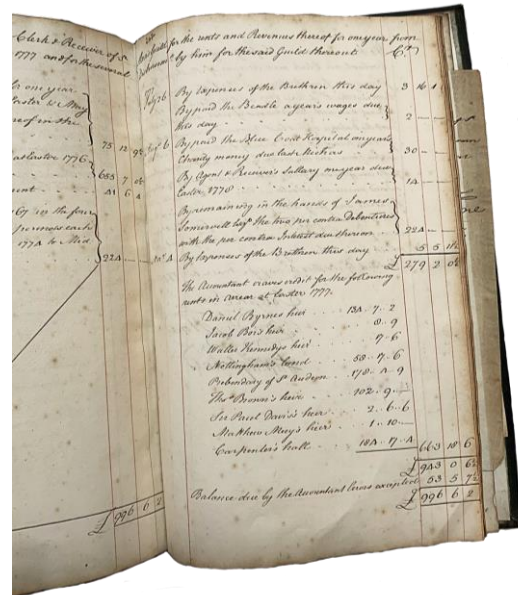 Clerk & Receiver of S
1777 and for the several
for one year
Easter & May
thereof in the
75 12 9½
at Easter 1776
655 7 0½
ment
41 6 4
67 in the four
pences each
1774 to Mid
224
£ 996 6 2
Guild for the rents and Revenues thereof for one year from
by him for the said Guild thereout
Cr
July 26 By Expences of the Brethren this day 3 16 1
By paid the Beadle a years wages due
this day 2
6 By paid the Blue Coat Hospital one years
Charity money due last 30
By Agent & Receiver's Sallary one year due
Easter 1778 14
By remaining in the hands of James
Somervell Esqr. the two per contra Debentures
with the per contra Interest due thereon 224
By Expences of the Brethren this day 5 5 11½
£ 279 2 0½
The Accountant craves credit for the following
rents in arrear at Easter 1777.
Daniel Byrnes heir 134 .. 7 .. 2
Jacob Bors heir 8 .. 9
Walter Kennedys heir 17 .. 6
Nottingham's Land 58 .. 17 .. 6
Prebendary of St. Audeon 178 .. 4 .. 9
Thos. Brown's heir 102 .. 9
Sir Paul Davis's heir 2 .. 6 .. 6
Matthew May's heirs 1 .. 10
Carpenter's hall 184 .. 17 .. 4 663 18 6
£ 943 0 6½
Balance due by the Accountant Errors excepted 53 5 7½
£ 996 6 2